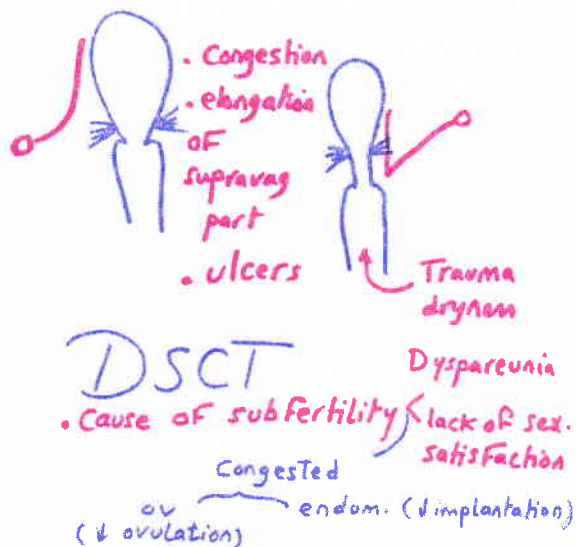 . Congestion
. elongation
of
supravag
part
. ulcers
Trauma
dryness
DSCT
Dyspareunia
. Cause of subfertility
lack of sex.
satisfaction
Congested
ov
(↓ ovulation)
endom. (↓ implantation)